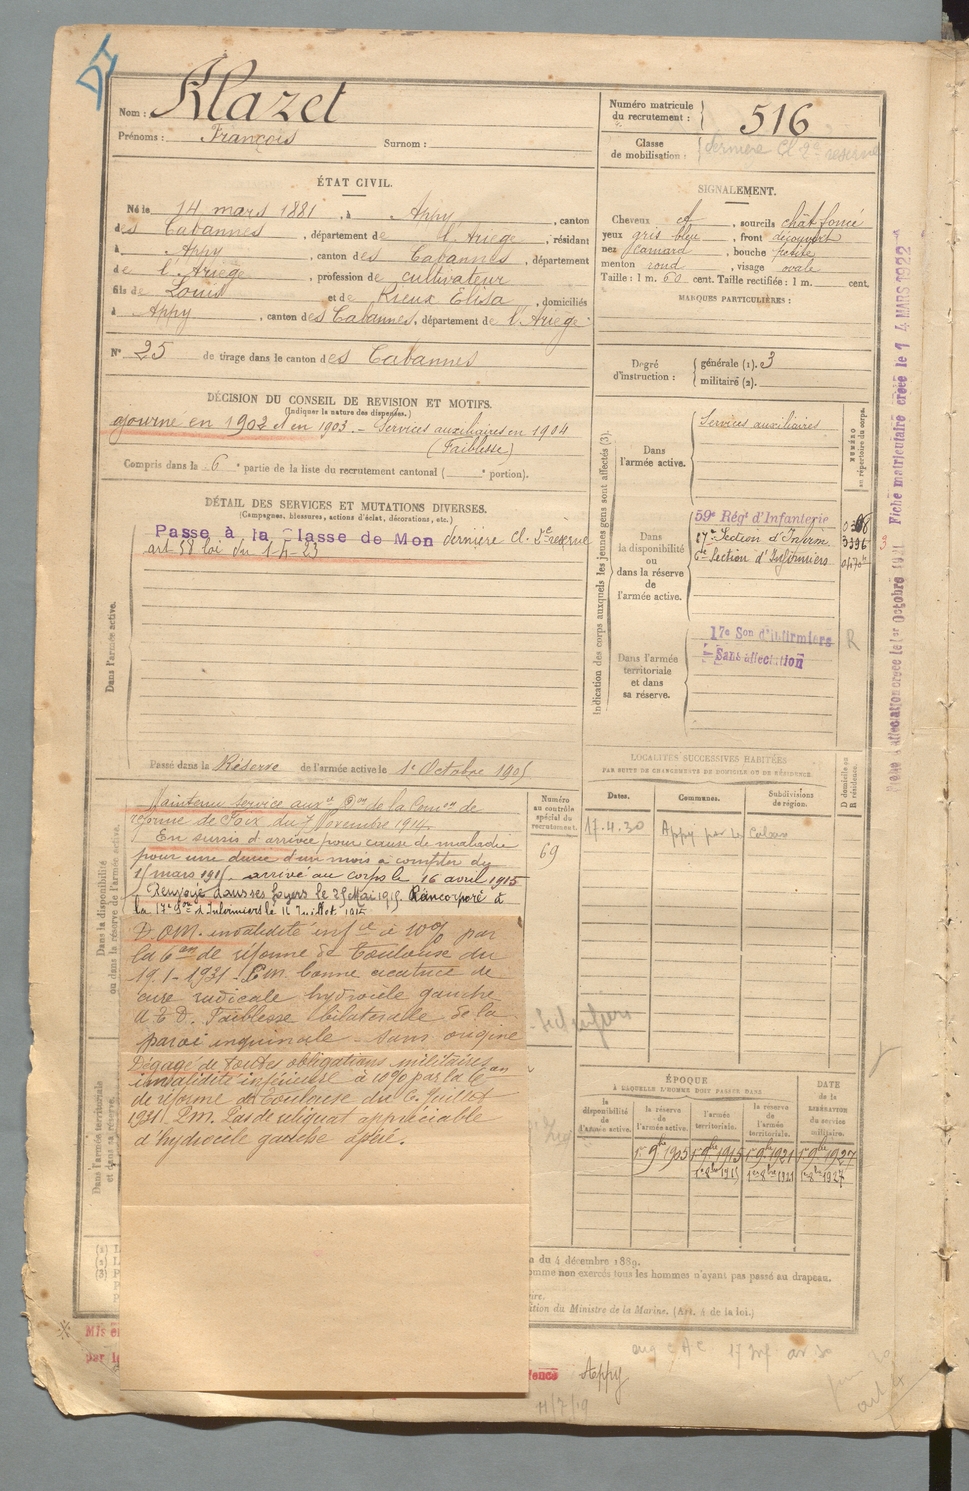 Nom : Alazet
Prénoms : François Surnom :
Numéro matricule du recrutement : 516
Classe de mobilisation : dernière Cl 2e reserve
ÉTAT CIVIL.
Né le 14 mars 1881, à Appy, canton
des Cabannes, département de l'Ariege, résidant
à Appy, canton des Cabannes, département
de l'Ariège, profession de cultivateur
fils de Louis et de Rieux Elisa, domiciliés
à Appy, canton des Cabannes, département de l'Ariege.
N° 25 de tirage dans le canton des Cabannes
SIGNALEMENT.
Cheveux ct, sourcils chât foncé
yeux gris bleu, front découvert
nez camard, bouche petite
menton rond, visage ovale
Taille : 1 m. 60 cent. Taille rectifiée : 1 m. cent.
MARQUES PARTICULIÈRES :
Degré d'instruction : générale (1). 3
militaire (2).
DÉCISION DU CONSEIL DE REVISION ET MOTIFS.
(Indiquer la nature des dispenses.)
ajourné en 1902 et en 1903. - Services auxiliaires en 1904
(Faiblesse)
Compris dans la 6e partie de la liste du recrutement cantonal ( e portion).
DÉTAIL DES SERVICES ET MUTATIONS DIVERSES.
(Campagnes, blessures, actions d'éclat, décorations, etc.)
Passe à la Classe de Mon dernière cl. 2e reserve
art 58 loi du 1-4-23
Dans l'armée active.
Passé dans la Réserve de l'armée active le 1er Octobre 1905
Indication des corps auxquels les jeunes gens sont affectés (3).
NUMÉRO au répertoire du corps.
Dans l'armée active.
Services auxiliaires
Dans la disponibilité ou dans la réserve de l'armée active.
59e Régt d'Infanterie
17e Section d'Infirm. 3396
6e Section d'Infirmiers
Dans l'armée territoriale et dans sa réserve.
17e Son d'Infirmiers
Sans affectation
R
Fiche matriculaire créée le 1 4 MARS 1922
Dans la disponibilité ou dans la réserve de l'armée active.
Maintenu service auxre Don de la Comon de
réforme de Foix du 7 Novembre 1914.
En sursis d'arrivée pour cause de maladie
pour une durée d'un mois à compter du
15 mars 1915. arrivé au corps le 16 avril 1915
Renvoyé dans ses foyers le 25 Mai 1915. Réincorporé à
la 17e Son d'Infirmiers le 16 Juillet 1915
D.OM. invalidité infre à 10% par
la 6em de réforme de Toulouse du
19-1-1931 - P.m. bonne cicatrice de
cure radicale hydrocèle gauche
A E D. Faiblesse bilaterable de la
paroi inguinale - Sans origine
Dégagé de toutes obligations militaires
invalidité inférieure à 10% par la Con
de réforme de Toulouse du 6 Juillet
1931. P.m. Pas de reliquat appréciable
d'hydrocèle gauche opérée.
Numéro au contrôle spécial du recrutement.
69
LOCALITÉS SUCCESSIVES HABITÉES
PAR SUITE DE CHANGEMENTS DE DOMICILE OU DE RÉSIDENCE.
Dates. Communes. Subdivisions de région. D domicile ou R résidence.
17.4.30 Appy par les Caban
Dans l'armée territoriale et dans sa réserve.
ÉPOQUE
À LAQUELLE L'HOMME DOIT PASSER DANS
DATE de la LIBÉRATION du service militaire.
la disponibilité de l'armée active. la réserve de l'armée active. l'armée territoriale. la réserve de l'armée territoriale.
1er 9bre 1905 1er 9bre 1915 1er 9bre 1921 1er 9bre 1927
1er 8bre 1915 1er 8bre 1921 1er 8bre 1927
du 4 décembre 1889.
omme non exercés tous les hommes n'ayant pas passé au drapeau.
ire.
ition du Ministre de la Marine. (Art. 4 de la loi.)
Mis en
par le
Appy
11/7/19